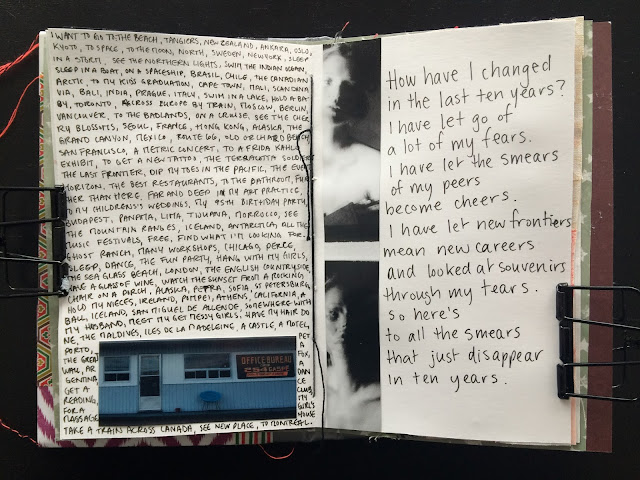 I WANT TO GO TO THE BEACH, TANGIERS, NEW ZEALAND, ANKARA, OSLO,
KYOTO, TO SPACE, TO THE MOON, NORTH, SWEDEN, NEW YORK, SLEEP
IN A STORM, SEE THE NORTHERN LIGHTS, SWIM THE INDIAN OCEAN,
SLEEP IN A BOAT, ON A SPACESHIP, BRASIL, CHILE, THE CANADIAN
ARCTIC, TO MY KIDS GRADUATION, CAPE TOWN, MALI, SCANDINA
VIA, BALI, INDIA, PRAGUE, ITALY, SWIM IN A LAKE, HOLD A BA
BY, TORONTO, ACROSS EUROPE BY TRAIN, MOSCOW, BERLIN,
VANCOUVER, TO THE BADLANDS, ON A CRUISE, SEE THE CHER
RY BLOSSOMS, SEOUL, FRANCE, HONG KONG, ALASKA, THE
GRAND CANYON, MEXICO, ROUTE 66, OLD ORCHARD BEACH
SAN FRANCISCO, A METRIC CONCERT, TO A FRIDA KAHLO
EXHIBIT, TO GET A NEW TATTOO, THE TERRACOTTA SOLDIERS
THE LAST FRONTIER, DIP MY TOES IN THE PACIFIC, THE EVENT
HORIZON, THE BEST RESTAURANTS, TO THE BATHROOM, FUR
THER THAN HERE, FAR AND DEEP IN MY ART PRACTICE,
TO MY CHILDREN'S WEDDINGS, MY 95TH BIRTHDAY PARTY,
BUDAPEST, PANAMA, LIMA, TIJUANA, MORROCCO, SEE
THE MOUNTAIN RANGES, ICELAND, ANTARCTICA, ALL THE
MUSIC FESTIVALS, FREE, FIND WHAT I'M LOOKING FOR,
GHOST RANCH, MANY WORKSHOPS, CHICAGO,
SLEEP, DANCE, THE FUN PARTY, HANG WITH MY GIRLS,
THE SEA GLASS BEACH, LONDON, THE ENGLISH COUNTRYSIDE,
HAVE A GLASS OF WINE, WATCH THE SUNSET FROM A ROCKING
CHAIR ON A PORCH, ALASKA, PETRA, SOFIA, ST PETERSBURG,
HOLD MY NIECES, IRELAND, POMPEI, ATHENS, CALIFORNIA, A
BALL, ICELAND, SAN MIGUEL DE ALLENDE, SOMEWHERE WITH
MY HUSBAND, MEET MY GET MESSY GIRLS, HAVE MY HAIR DO
NE, THE MALDIVES, ILES DE LA MADELEINE, A CASTLE, A MOTEL,
PORTO,
THE GREAT
WALL, AR
GENTINA,
GET A
READING,
FOR A
MASSAGE,
PET
A
FOX,
A
DAN
CE
CLUB,
MY
GIRL'S
HOUSE
TAKE A TRAIN ACROSS CANADA, SEE NEW PLACE, TO MONTREAL.
OFFICE BUREAU
254
How have I changed
in the last ten years?
I have let go of
a lot of my fears.
I have let the smears
of my peers
become cheers.
I have let new frontiers
mean new careers
and looked at souvenirs
through my tears.
So here's
to all the smears
that just disappear
in ten years.